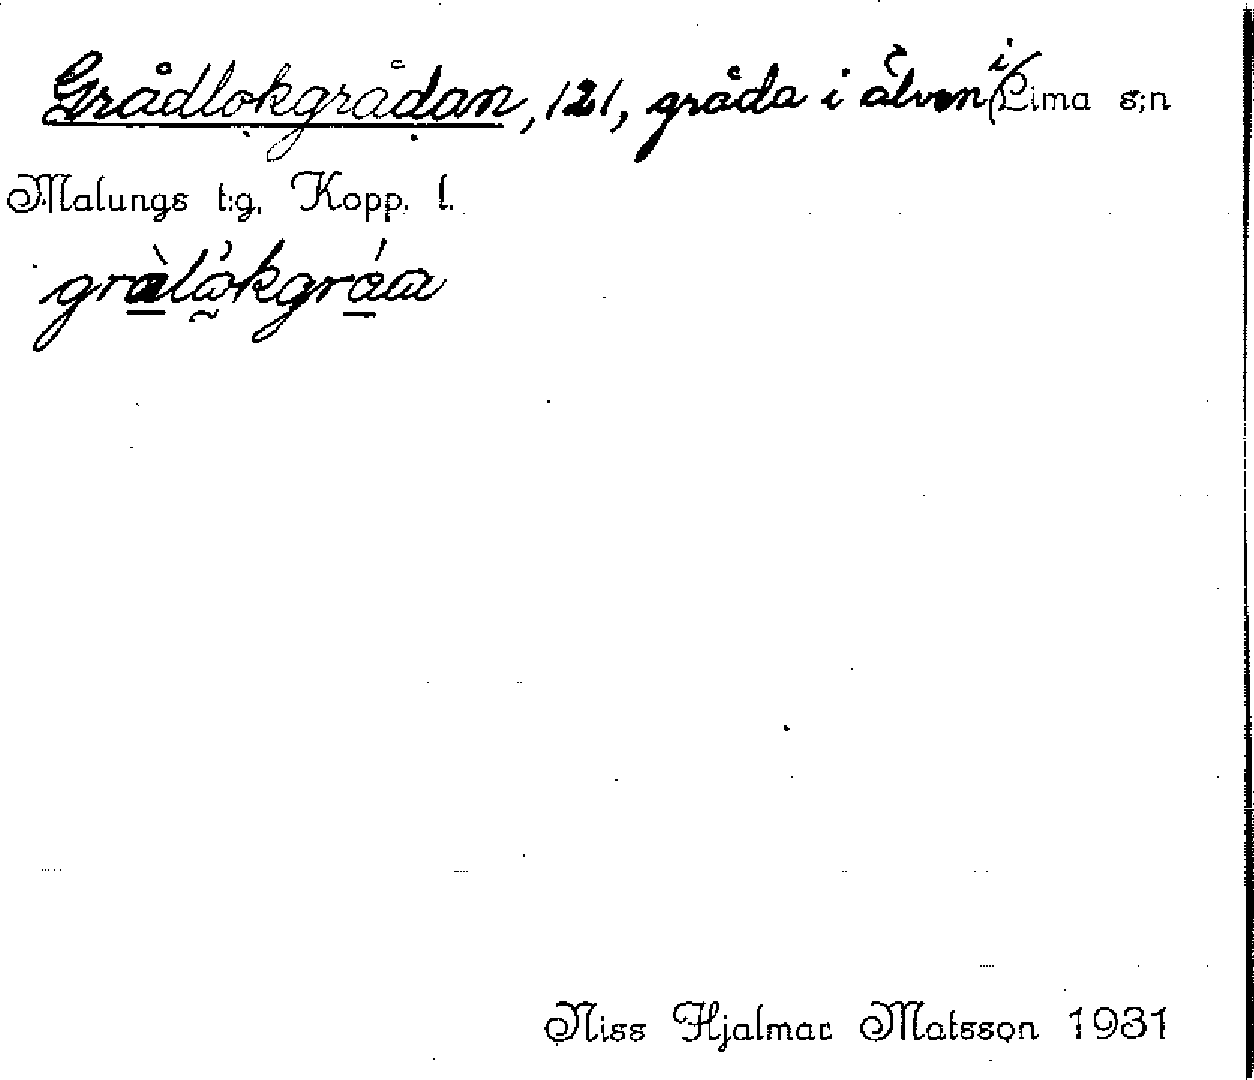 Grådlokgrådan, 121, gråda i älven i Lima s:n
Malungs t:g. Kopp. l.
gràlòkgráa
Niss Hjalmar Matsson 1931